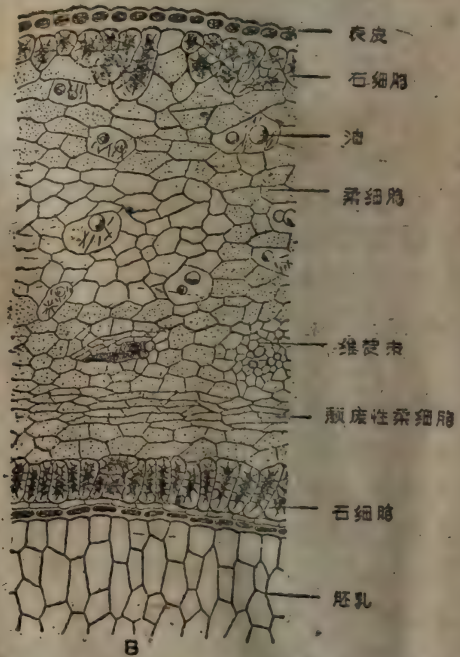 表皮
石细胞
油
柔细胞
维管束
颓废性柔细胞
石细胞
胚乳
B